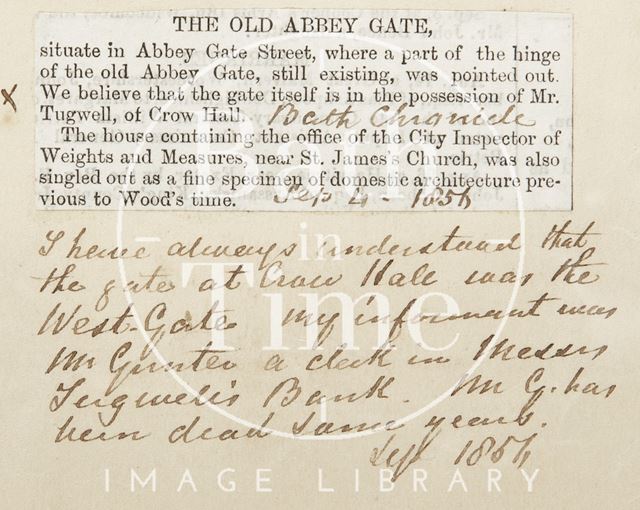 THE OLD ABBEY GATE,
situate in Abbey Gate Street, where a part of the hinge
of the old Abbey Gate, still existing, was pointed out.
We believe that the gate itself is in the possession of Mr.
Tugwell, of Crow Hall. Bath Chronicle
The house containing the office of the City Inspector of
Weights and Measures, near St. James's Church, was also
singled out as a fine specimen of domestic architecture pre-
vious to Wood's time. Sep 4 - 1856
x
I have always understood that
the gate at Crow Hall was the
West-Gate my informant was
Mr Gunter a clerk in Messrs
Tugwell's Bank. Mr G. has
been dead some years.
Sep 1856
Bath
in
Time
IMAGE LIBRARY